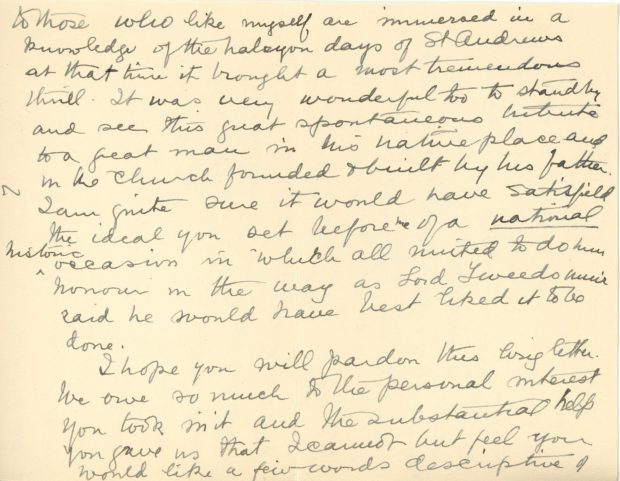 to those who like myself are immersed in a
knowledge of the halcyon days of St Andrews
at that time it brought a most tremendous
thrill. It was very wonderful too to stand by
and see this great spontaneous tribute
to a great man in his native place and
in the Church founded & built by his father.
I am quite sure it would have satisfied
the ideal you set before me of a national
historic
occasion in which all united to do him
honour in the way as Lord Tweedsmuir
said he would have best liked it to be
done.
I hope you will pardon this long letter.
We owe so much to the personal interest
you took in it and the substantial help
you gave us that I cannot but feel you
would like a few words descriptive of